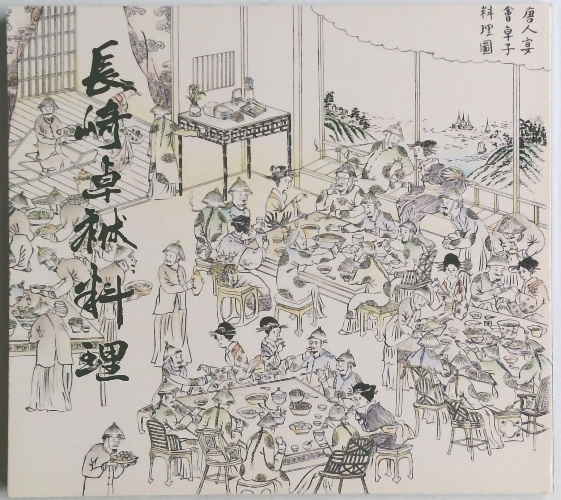 長崎卓袱料理
唐人宴
會卓子
料理圖